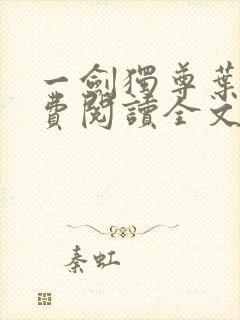 一劍獨尊葉
費閱讀全文
秦虹